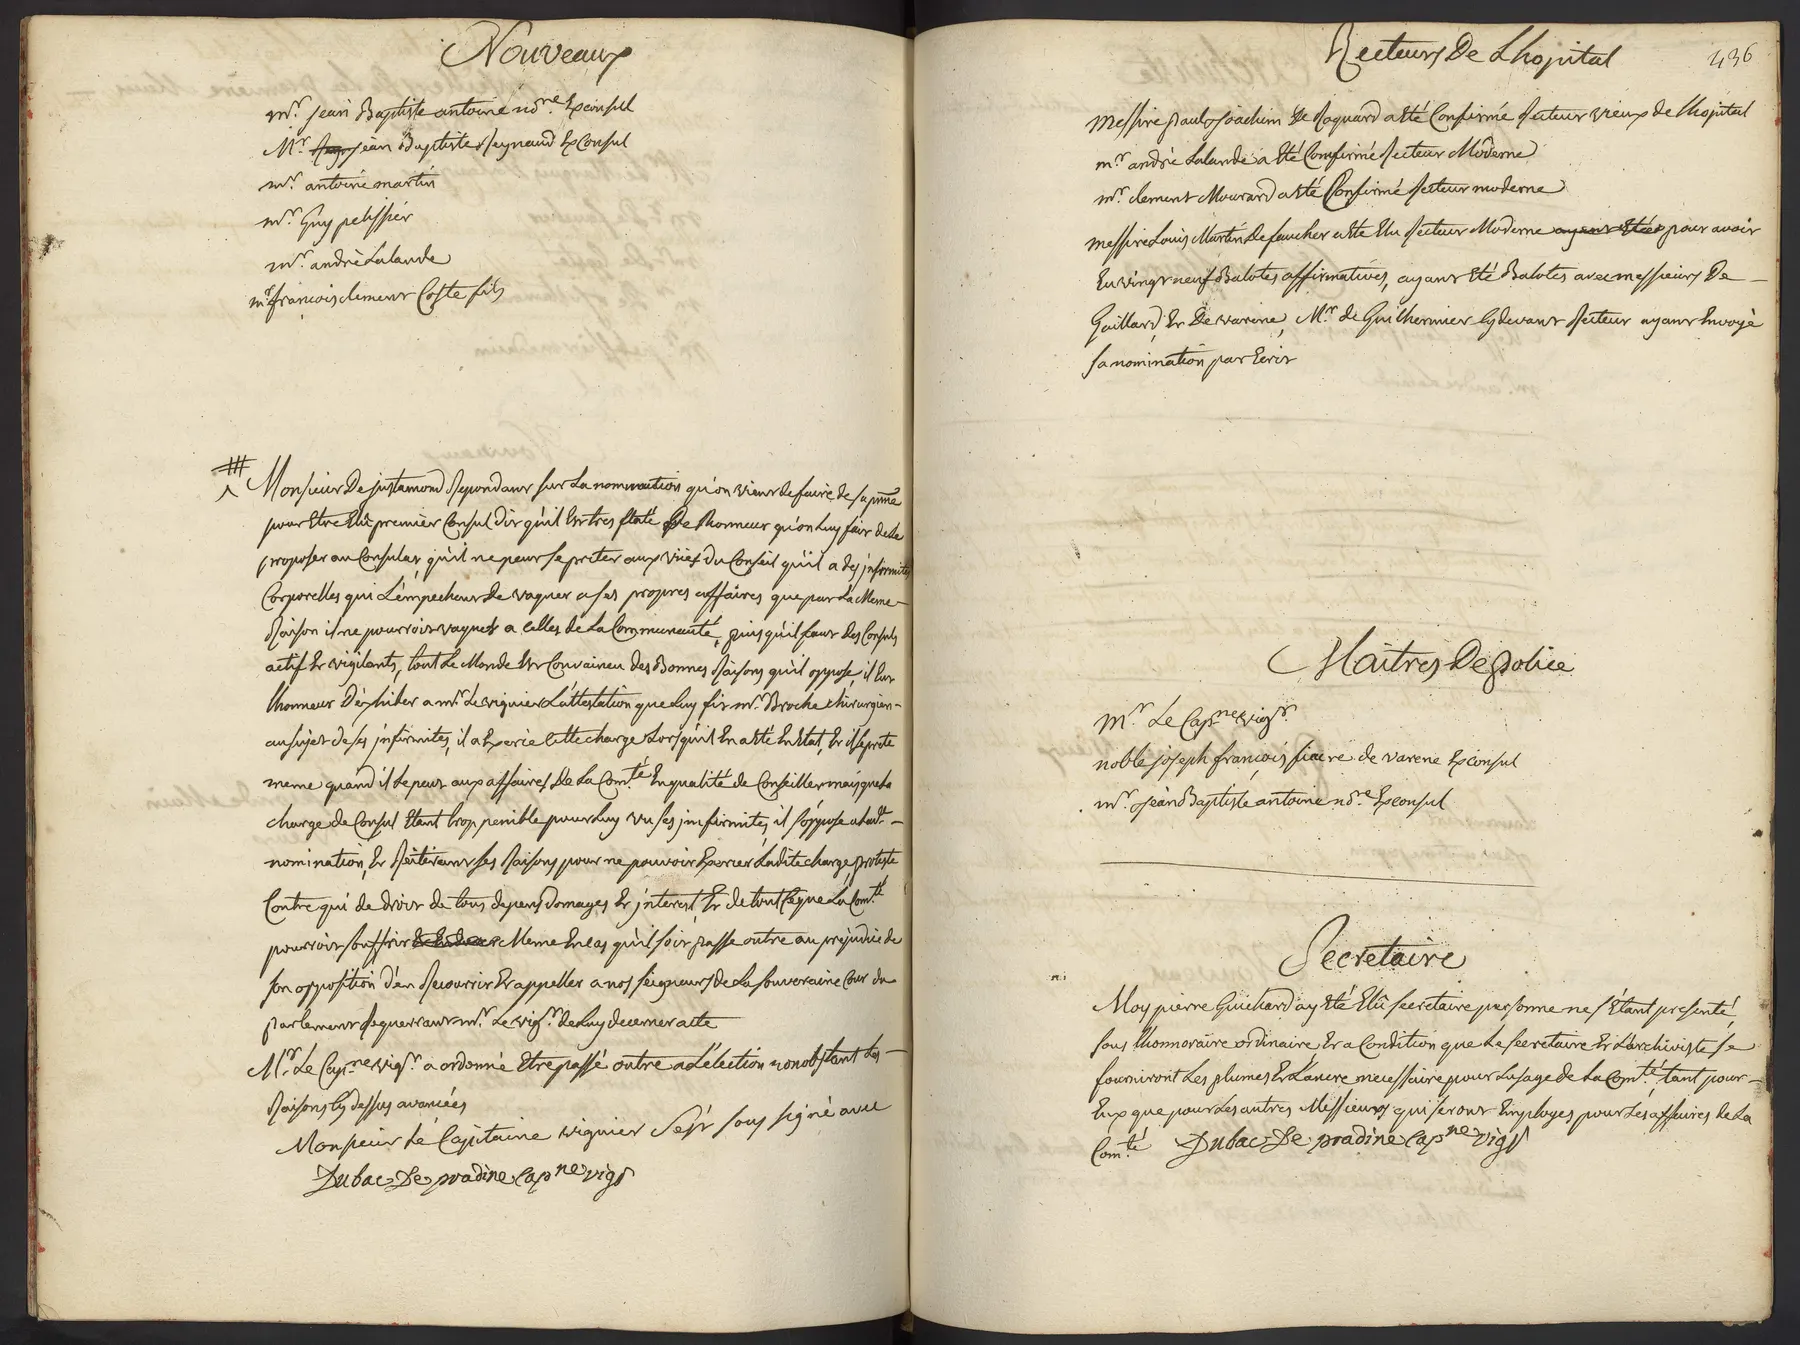 Nouveaux
mr. jean Baptiste antoine nore. Exconsul
Mr. jean Baptiste Reynaud Exconsul
mr. antoine martin
mr. Guy pelissier
mr. andré Lalande
mr. francois clement Coste fils
Monsieur De justamond Repondant sur La nomination qu'on vient de faire de sa pnne
pour Etre Elû premier Consul dit qu'il Est tres flaté De lhonneur qu'on Luy fait de Le
proposer au Consulat, qu'il ne peut se preter aux vües du Conseil qu'il a des jnfirmités
Corporelles qui L'émpechent De vaquer a ses propres affaires que par La Meme
Raison il ne pourroit vaquer a Celles de La Communauté, puis qu'il faut des Consuls
actif Et vigilants, tout Le Monde Est Convaincu des Bonnes Raisons qu'il oppose, il Eut
lhonneur D'éxhiber a mr. Le viguier L'attestation que Luy fit mr. Broche chirurgien
au sujet de ses jnfirmités, il a Exercé Cette charge Lorsqu'il En a Eté En Etat, Et il se prete
meme quand il Le peut aux affaires de La Comté. En qualité de Conseiller mais que La
charge de Consul Etant trop penible pour Luy vu ses jnfirmités, il s'óppose a ladte.
nomination, Et Réiterant ses Raisons pour ne pouvoir Exercer Ladite charge, proteste
Contre qui de droit de tous depens Domages Et jnterest, Et de tout Ce que La Comté.
pourroit souffrir Meme En Cas qu'il soit passé outre au préjudice de
son opposition d'en Recourrir Et appeller a nos seigneurs de La souveraine Cour du
parlement Requerrant mr. Le vigr. de Luy decerner acte
Mr. Le Capne. vigr. a ordonné Etre passé outre a L'élection nonobstant Les
Raisons Cy dessus avancées
Monsieur Le Capitaine viguier s'est sous signé avec
Dubac De pradine Capne vigr
Recteurs De Lhopital
436
Messire paul joachim De Roquard a Eté Confirmé Recteur vieux de Lhopital
mr. andré Lalande a Eté Comfirmé Recteur Moderne
mr. clement Mourard a Eté Confirmé Recteur moderne
Messire Louis Martin De faucher a Eté Elu Recteur Moderne ayant Etéé pour avoir
Eu vingt neuf Balotes affirmatives, ayant Eté Balotés avec messieurs De
Gaillard, Et De varene, Mr. de Guilhermier Cy devant Recteur ayant Envoyé
sa nomination par Ecrit
Maitres De police
Mr. Le Capne vigr.
noble joseph françois siccre de varene Exconsul
mr. jean Baptiste antoine nore. Exconsul
Secretaire
Moy pierre Guichard ay Eté Elû secretaire personne ne s'étant presenté,
sous lhonnoraire ordinaire Et a Condition que Le secretaire Et L'archiviste se
fourniront Les plumes Et L'ancre necessaire pour L'usage de La Comté. tant pour
Eux que pour Les autres Messieurs qui seront Employés pour Les affaires de La
Comté. Dubac De pradine Capne vigr